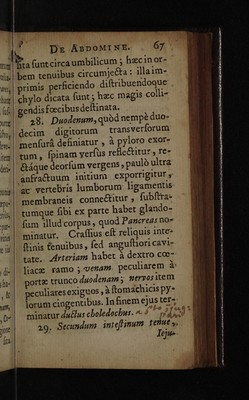 De Abdomine. 67
nta sunt circa umbilicum; hæc in or-
bem tenuibus circumjecta: illa im-
primis perficiendo distribuendoque
chylo dicata sunt; hæc magis colli-
gendis fœcibus destinata.
28. Duodenum, quòd nempè duo-
decim digitorum transversorum
mensurâ definiatur, à pyloro exor-
tum, spinam versùs reflectitur, re-
ctáque deorsum vergens, paulò ultra
anfractuum initium exporrigitur,
ac vertebris lumborum ligamentis
membraneis connectitur, substra-
tumque sibi ex parte habet glando-
sum illud corpus, quod Pancreas no-
minatur. Crassius est reliquis inte-
stinis tenuibus, sed angustiori cavi-
tate. Arteriam habet à dextro cœ-
liacæ ramo; venam peculiarem à
portæ trunco duodenam; nervos item
peculiares exiguos, à stomachicis py-
lorum cingentibus. In finem ejus ter-
minatur ductus choledochus.
29. Secundum intestinum tenue,
Ieju-